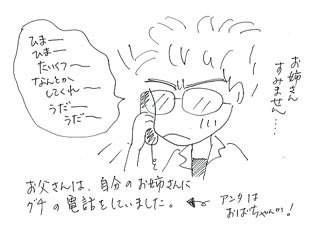 ひまー
ひまー
たいくつ〜
なんとか
してくれ〜
うだ〜
うだ〜
お姉さん
すみません…
お父さんは、自分のお姉さんに
グチの電話をしていました。
アンタは
おばちゃんか！